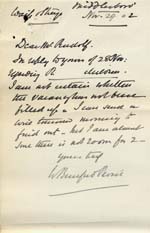 Waifs & Strays Middlesbro'
Nov. 29 02
Dear Mr Rudolf.
In reply to yours of 28 Nov:
I am not certain whether
the vacancy has not been
filled up. I can send a
wire tomorrow morning to
find out - but I am almost
sure there is not room for 2
yours truly